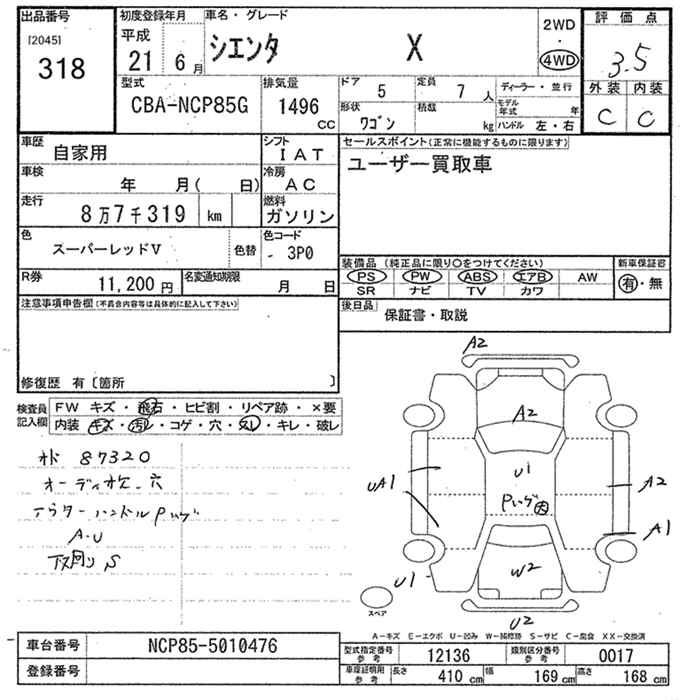 出品番号
[2045]
318
初度登録年月
平成
21 6月
車名・グレード
シエンタ X
2WD
・
4WD
評価点
3.5
外装 内装
C C
型式
CBA-NCP85G
排気量
1496
cc
ドア 5
定員 7人
形状 ワゴン
積載 kg
ディーラー・並行
モデル年式 年
ハンドル 左・右
車歴
自家用
シフト
IAT
セールスポイント(正常に機能するものに限ります)
ユーザー買取車
車検
年 月( 日)
冷房
AC
走行
8万7千319 km
燃料
ガソリン
色
スーパーレッドV
色替
色コード
- 3P0
装備品 (純正品に限り○をつけてください)
PS PW ABS エアB AW
SR ナビ TV カワ
新車保証書
有・無
R券
11,200円
名変通知期限
月 日
後日品
保証書・取説
注意事項申告欄(不具合内容等は具体的に記入して下さい)
修復歴 有〔箇所 〕
検査員記入欄
FW キズ・飛石・ヒビ割・リペア跡・×要
内装 キズ・汚レ・コゲ・穴・スレ・キレ・破レ
オド 87320
A・U
下回り S
A2
A2
U1
UA1
A2
A1
U1
W2
U2
スペア
A－キズ E－エクボ U－凹み W－補修跡 S－サビ C－腐食 XX－交換済
車台番号
NCP85-5010476
登録番号
型式指定番号参考 12136
類別区分番号参考 0017
車庫証明用参考
長さ 410 cm
幅 169 cm
高さ 168 cm